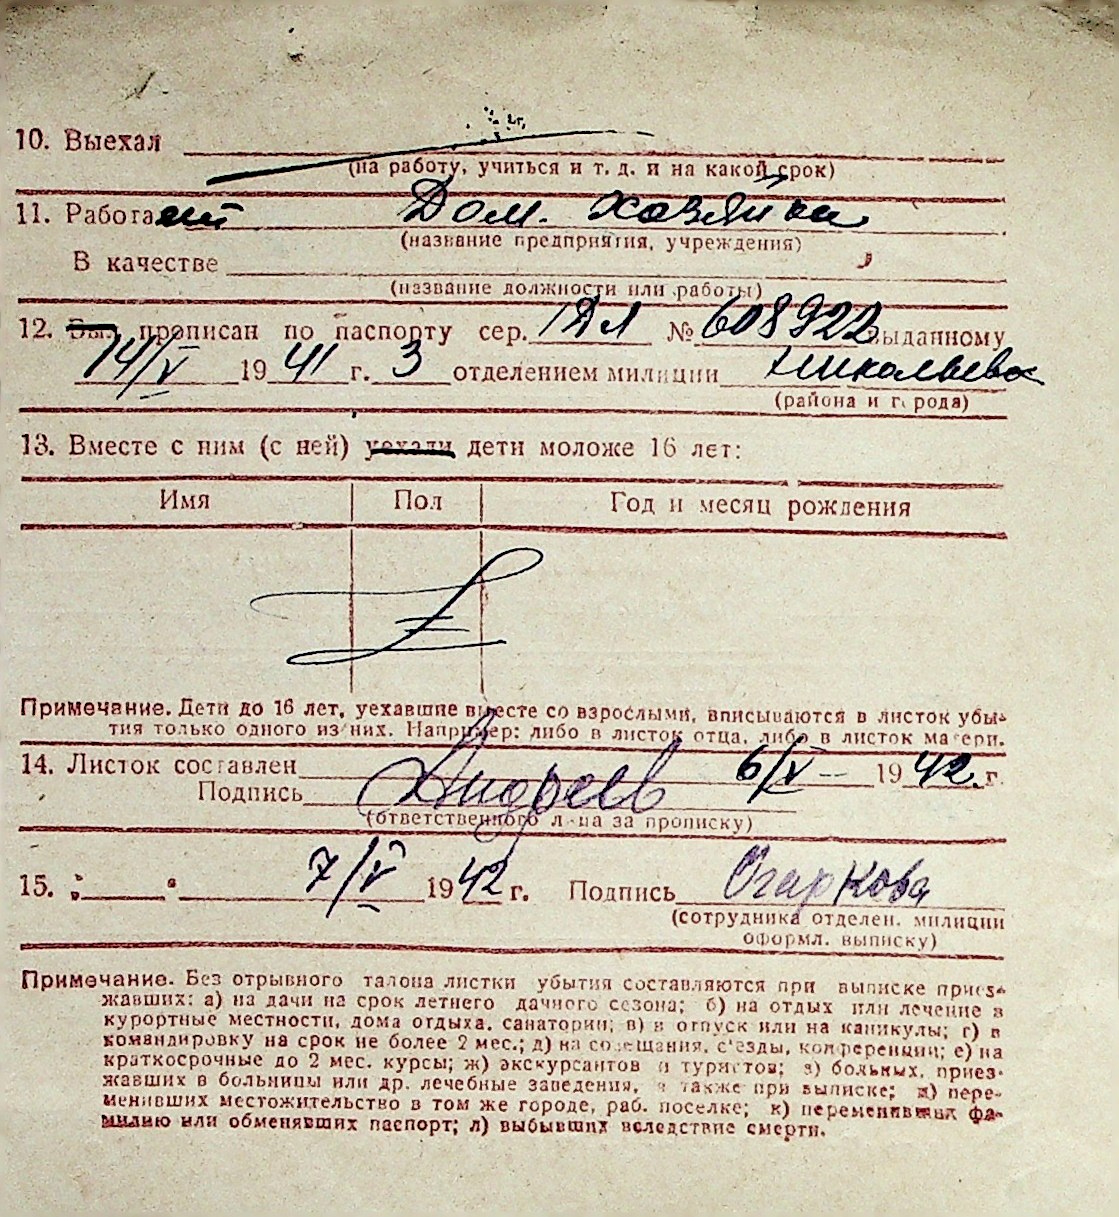 10. Выехал
(на работу, учиться и т. д. и на какой срок)
11. Работает Дом. хозяйка
(название предприятия, учреждения)
В качестве
(название должности или работы)
12. Был прописан по паспорту сер. 1ДЛ № 608922 выданному
14/V 1941 г. 3 отделением милиции Николаева
(района и города)
13. Вместе с ним (с ней) уехали дети моложе 16 лет:
Имя Пол Год и месяц рождения
Примечание. Дети до 16 лет, уехавшие вместе со взрослыми, вписываются в листок убы-
тия только одного из них. Например: либо в листок отца, либо в листок матери.
14. Листок составлен 6/V 1942 г.
Подпись Андреев
(ответственного л-ца за прописку)
15. 7/V 1942 г. Подпись Огаркова
(сотрудника отделен. милиции
оформл. выписку)
Примечание. Без отрывного талона листки убытия составляются при выписке приез-
жавших: а) на дачи на срок летнего дачного сезона; б) на отдых или лечение в
курортные местности, дома отдыха, санатории; в) в отпуск или на каникулы; г) в
командировку на срок не более 2 мес.; д) на совещания, с'езды, конференции; е) на
краткосрочные до 2 мес. курсы; ж) экскурсантов и туристов; з) больных, приез-
жавших в больницы или др. лечебные заведения, а также при выписке; и) пере-
менивших местожительство в том же городе, раб. поселке; к) переменивших фа-
милию или обменявших паспорт; л) выбывших вследствие смерти.